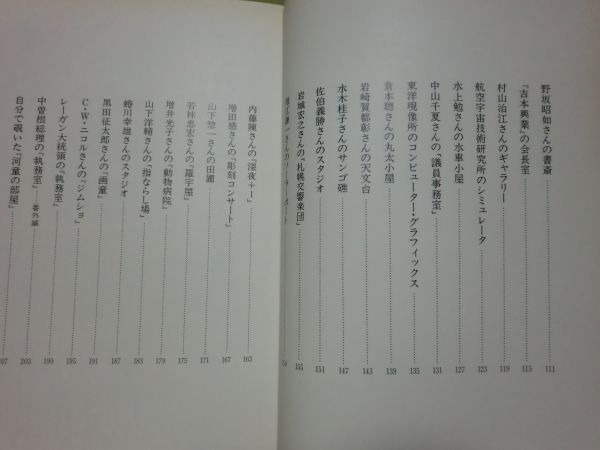 野坂昭如さんの書斎 111
『吉本興業』の会長室 115
村山治江さんのギャラリー 119
航空宇宙技術研究所のシミュレータ 123
水上勉さんの水車小屋 127
中山千夏さんの『議員事務室』 131
東洋現像所のコンピューター・グラフィックス 135
倉本聰さんの丸太小屋 139
岩崎賀都彰さんの天文台 143
水木桂子さんのサンゴ礁 147
佐伯義勝さんのスタジオ 151
岩城宏之さんの『札幌交響楽団』 155
内藤陳さんの『深夜＋１』 163
増田感さんの『彫刻コンサート』 167
山下惣一さんの田圃 171
若林忠宏さんの『羅宇屋』 175
増井光子さんの『動物病院』 179
山下洋輔さんの『指ならし場』 183
蜷川幸雄さんのスタジオ 187
黒田征太郎さんの『画童』 191
Ｃ・Ｗ・ニコルさんの『ジムショ』 195
レーガン大統領の『執務室』 199
中曽根総理の『執務室』 番外編 203
自分で覗いた『河童の部屋』 207